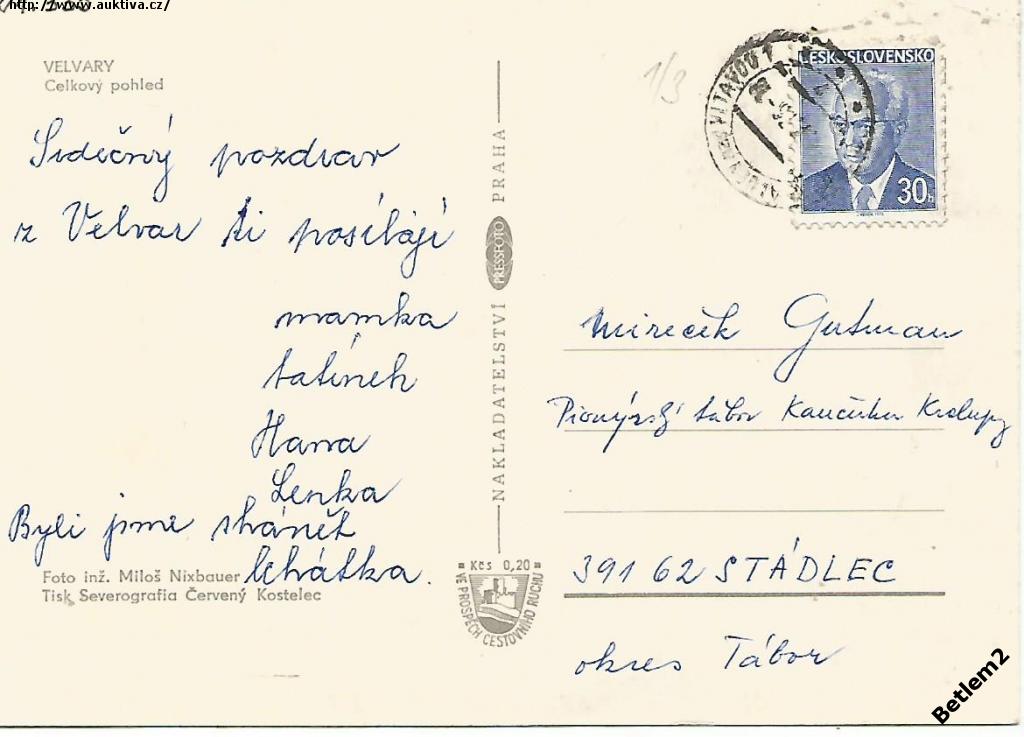 http://www.auktiva.cz/
VELVARY
Celkový pohled
Srdečný pozdrav
z Velvar ti posílají
mamka
tatínek
Hana
Lenka
Byli jsme shánět
lehátka.
Foto inž. Miloš Nixbauer
Tisk Severografia Červený Kostelec
NAKLADATELSTVÍ PRESSFOTO PRAHA
Kčs 0,20
VE PROSPĚCH CESTOVNÍHO RUCHU
1/3
ČESKOSLOVENSKO
30h
Mireček Gutman
Pionýrský tábor Kaučuku Kralupy
391 62 STÁDLEC
okres Tábor
Betlem2